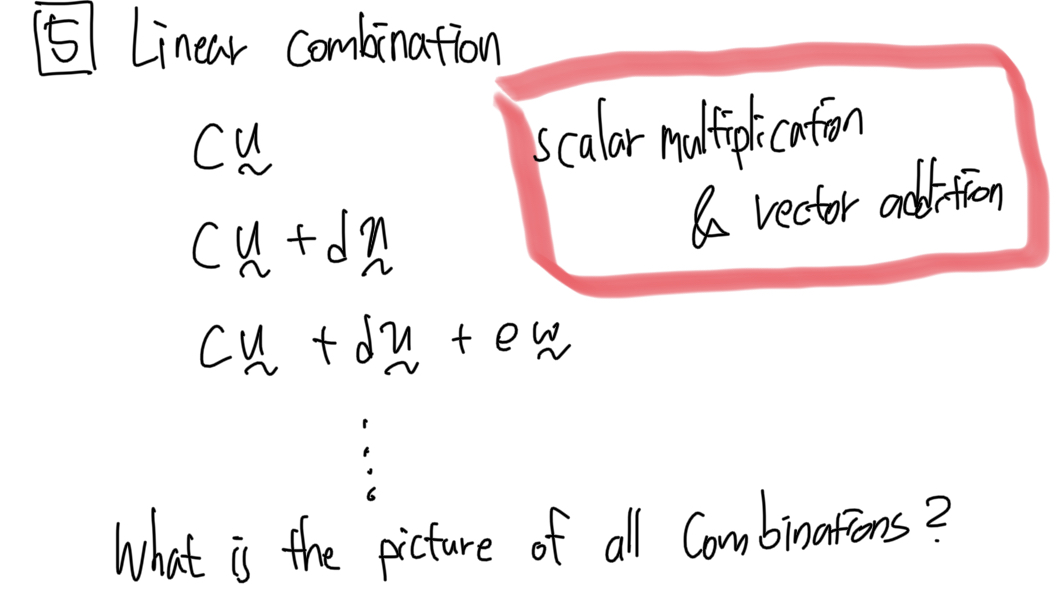 5 Linear Combination
scalar multiplication
& vector addition
cu
cu + dn
cu + du + ew
What is the picture of all combinations?